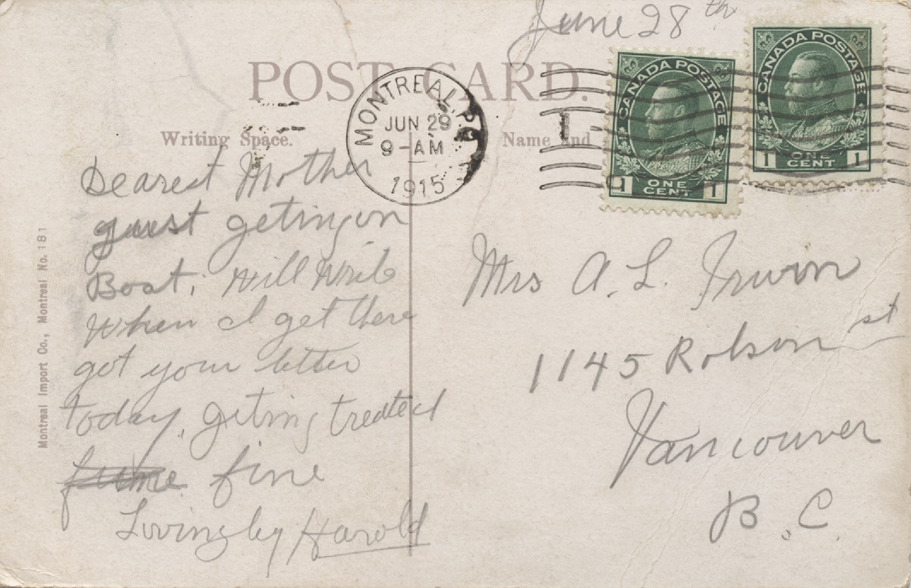 June 28th
POST CARD.
CANADA POSTAGE
1 ONE CENT 1
CANADA POSTAGE
1 ONE CENT 1
MONTREAL, P.Q.
JUN 29
9-AM
1915
Writing Space.
Name and
Dearest Mother
just geting on
Boat, will write
when I get there
got your letter
today, geting treated
fine
Lovingly Harold
Mrs A. L. Irwin
1145 Robson st
Vancouver
B.C.
Montreal Import Co., Montreal No. 181